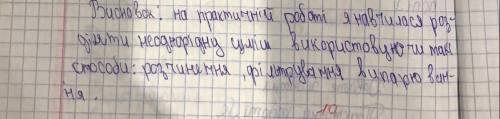 Висновок: на практичній роботі я навчилася роз-
діляти неоднорідну суміш використовуючи такі
способи: розчинення, фільтрування випарювен-
ня.
10